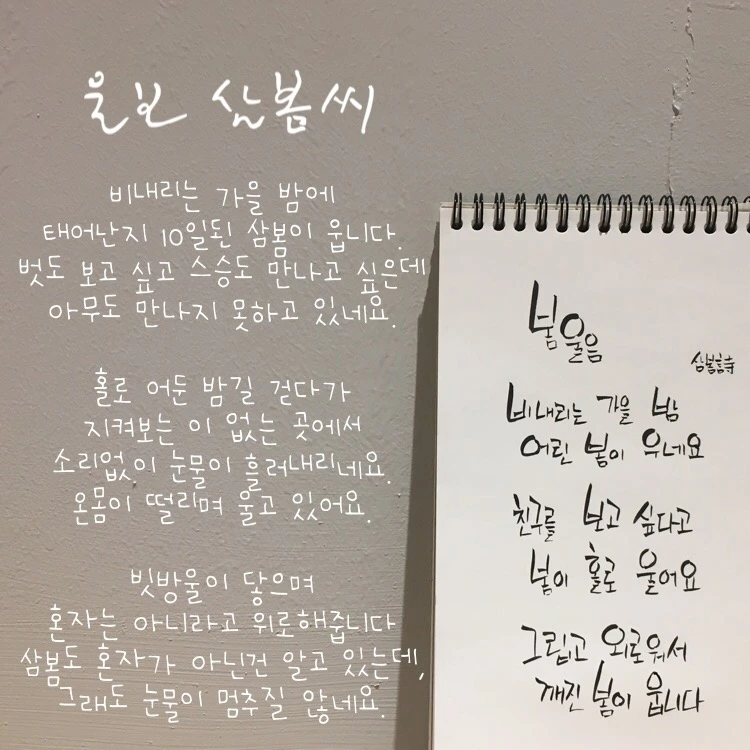 울보 삼봄씨
비내리는 가을 밤에
태어난지 10일된 삼봄이 웁니다.
벗도 보고 싶고 스승도 만나고 싶은데
아무도 만나지 못하고 있네요.
홀로 어둔 밤길 걷다가
지켜보는 이 없는 곳에서
소리없이 눈물이 흘러내리네요.
온몸이 떨리며 울고 있어요.
빗방울이 닿으며
혼자는 아니라고 위로해줍니다
삼봄도 혼자가 아닌건 알고 있는데,
그래도 눈물이 멈추질 않네요.
봄울음
삼봄詩
비내리는 가을 밤
어린 봄이 우네요
친구를 보고 싶다고
봄이 홀로 울어요
그립고 외로워서
깨진 봄이 웁니다